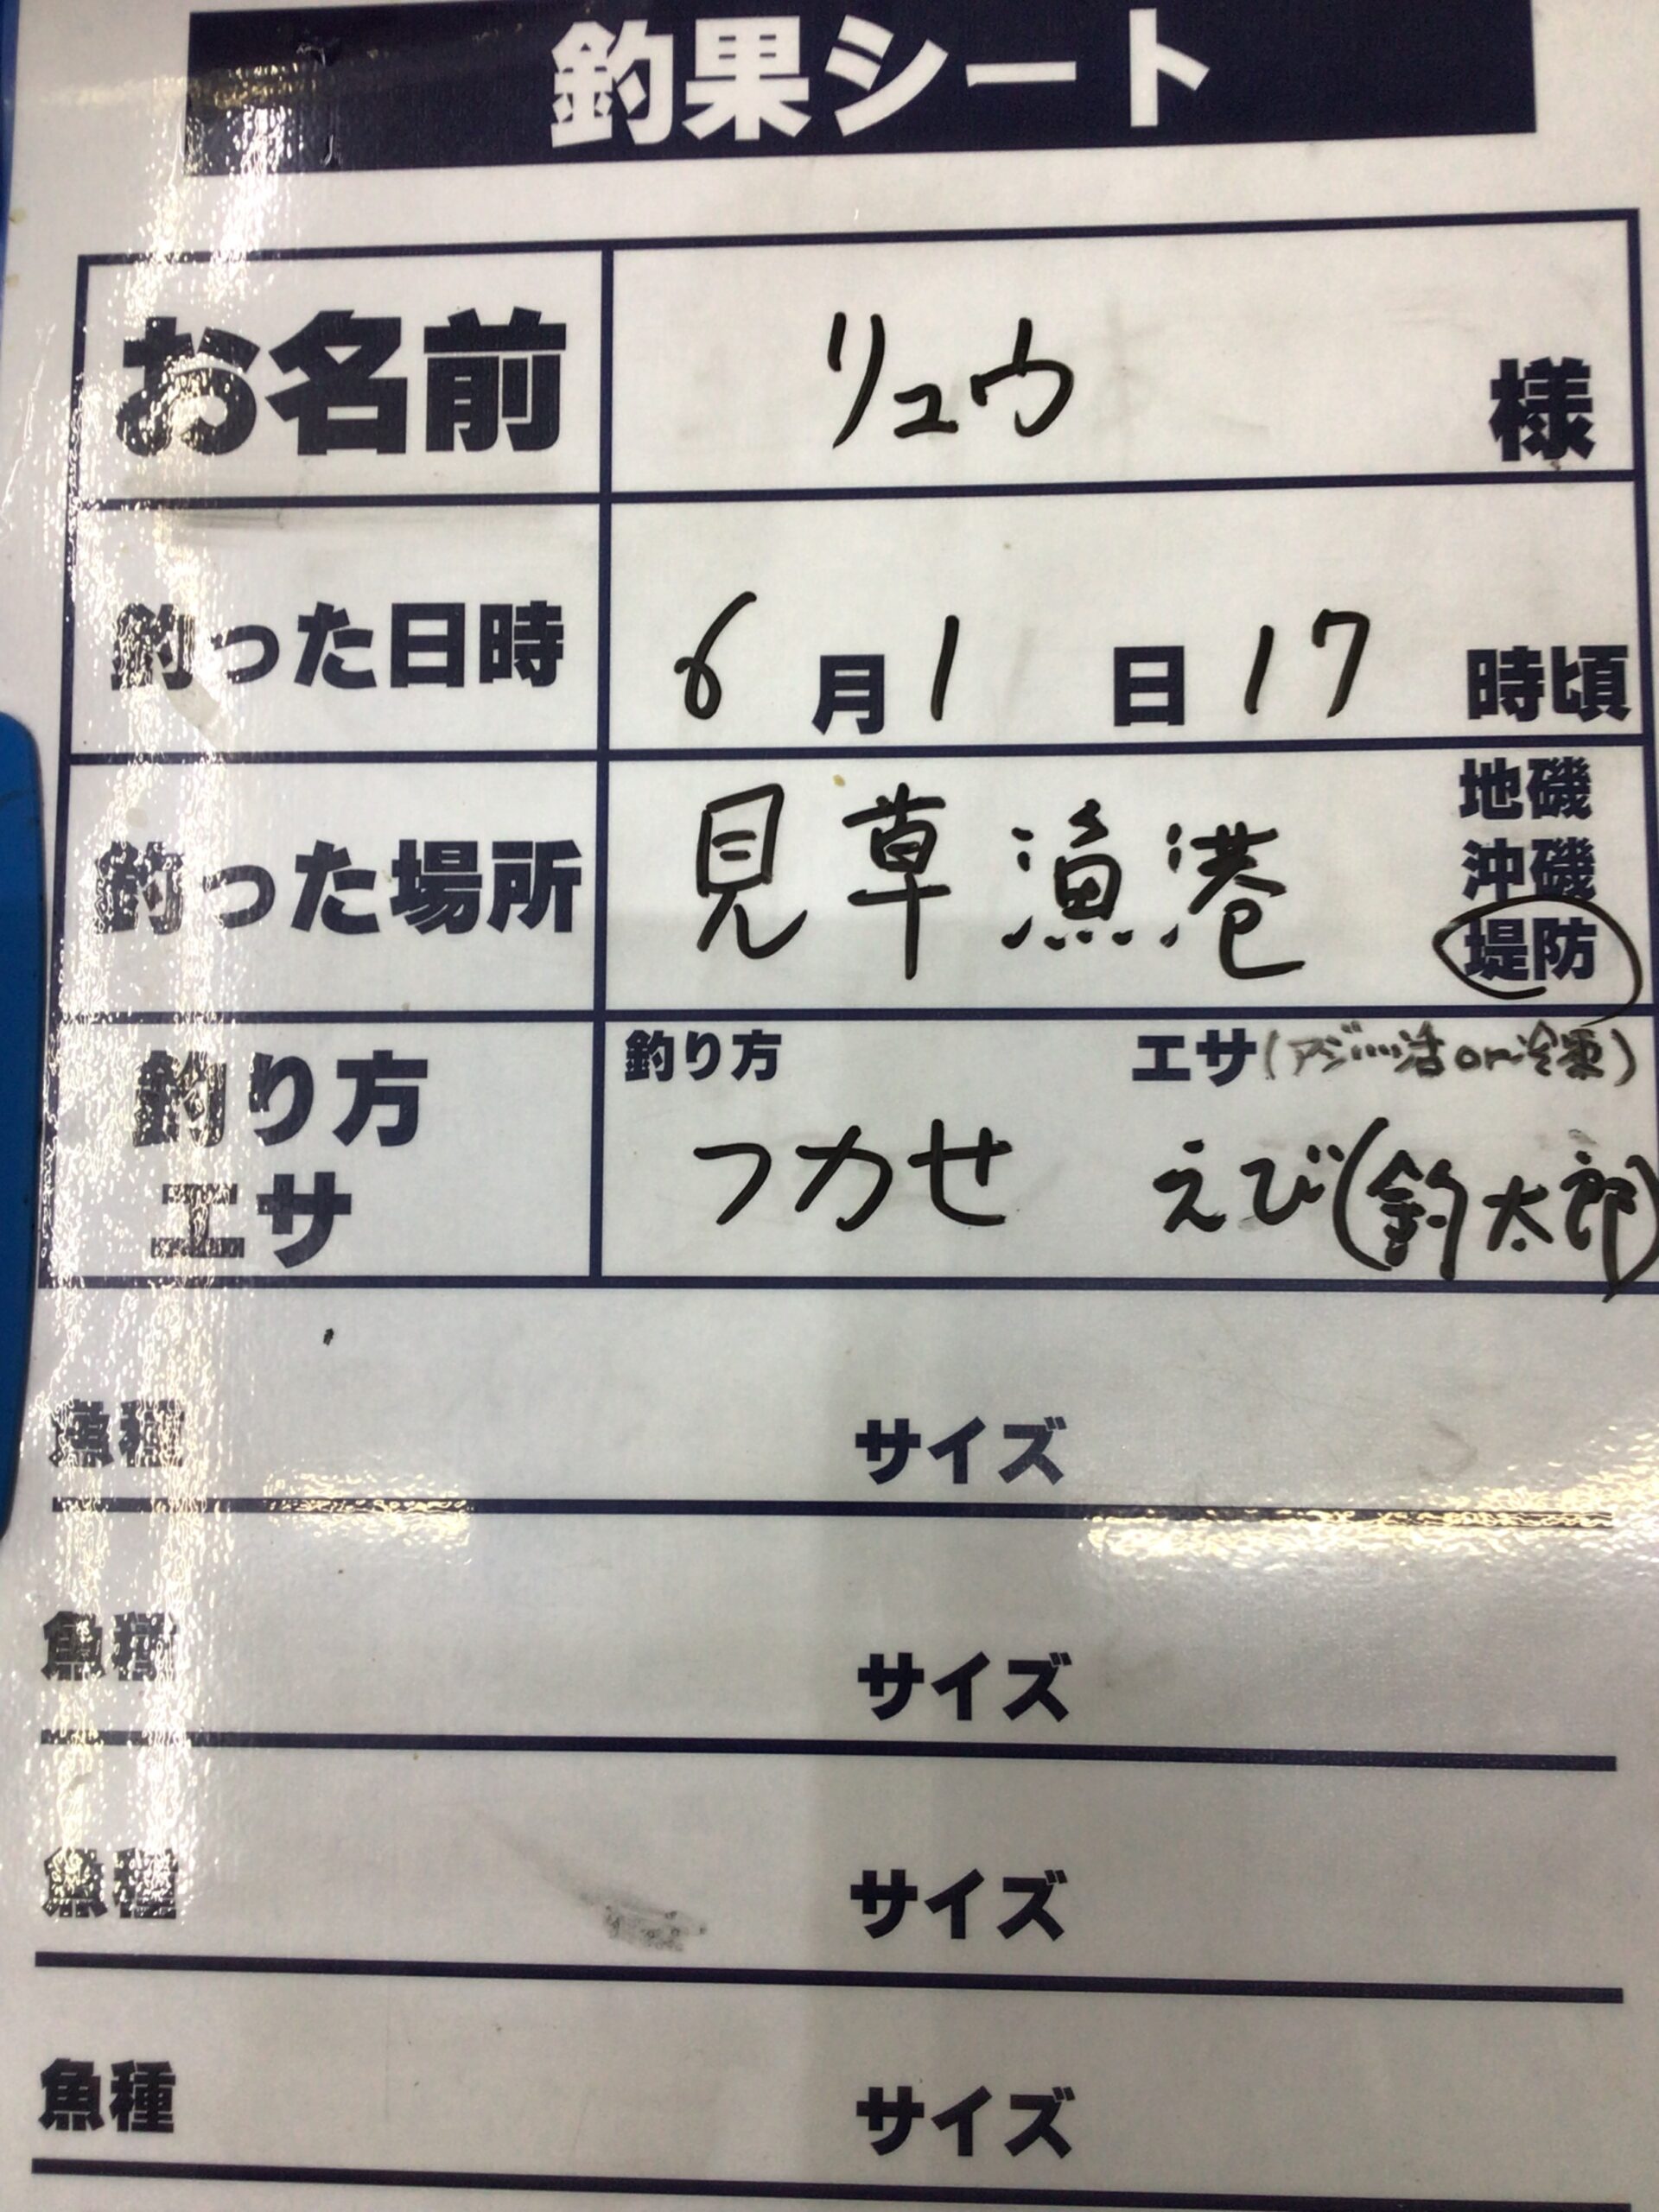 釣果シート
お名前 リュウ 様
釣った日時 6月1日17時頃
釣った場所 見草漁港 地磯
沖磯
堤防
釣り方 エサ(アジ…活or冷凍)
釣り方
エサ
フカせ えび(釣太郎)
魚種 サイズ
魚種 サイズ
魚種 サイズ
魚種 サイズ